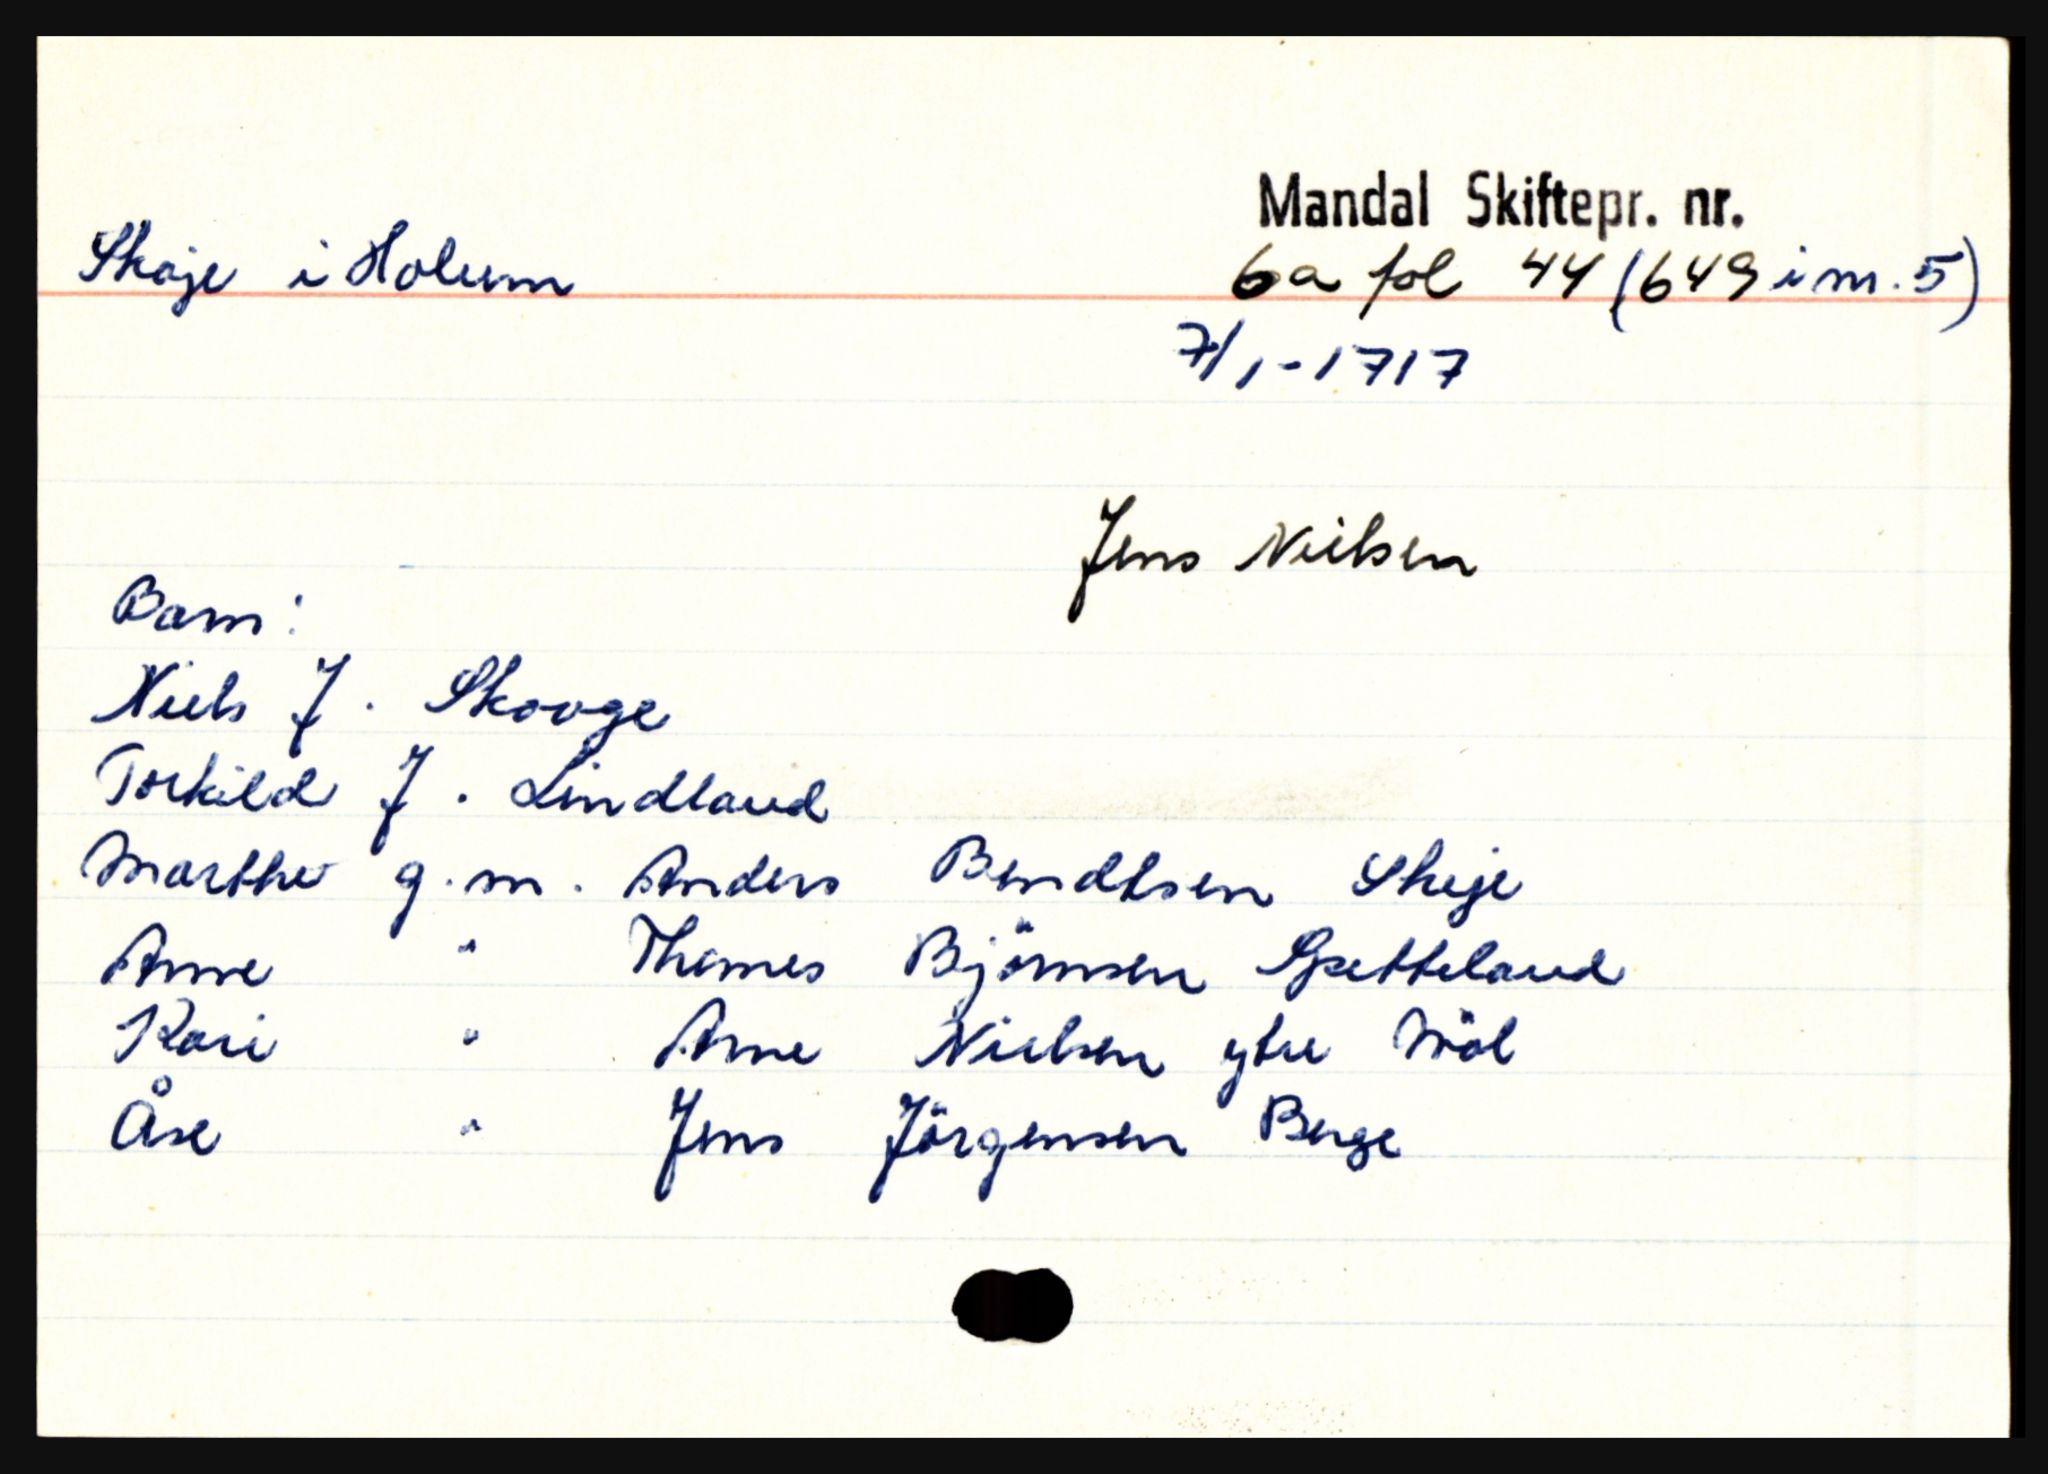 Mandal Skiftepr. nr.
Skøje i Holum 6a fol 44 (649 i nr. 5)
7/1-1717
Jens Nielsen
Barn:
Niels J. Skovge
Torkild J. Lindland
Marthe g.m. Anders Bendtsen Skeje
Anne " Thomes Björnsen Gsetteland
Kari " Arne Nielsen ytre Möl
Åse " Jens Jörgensen Berge